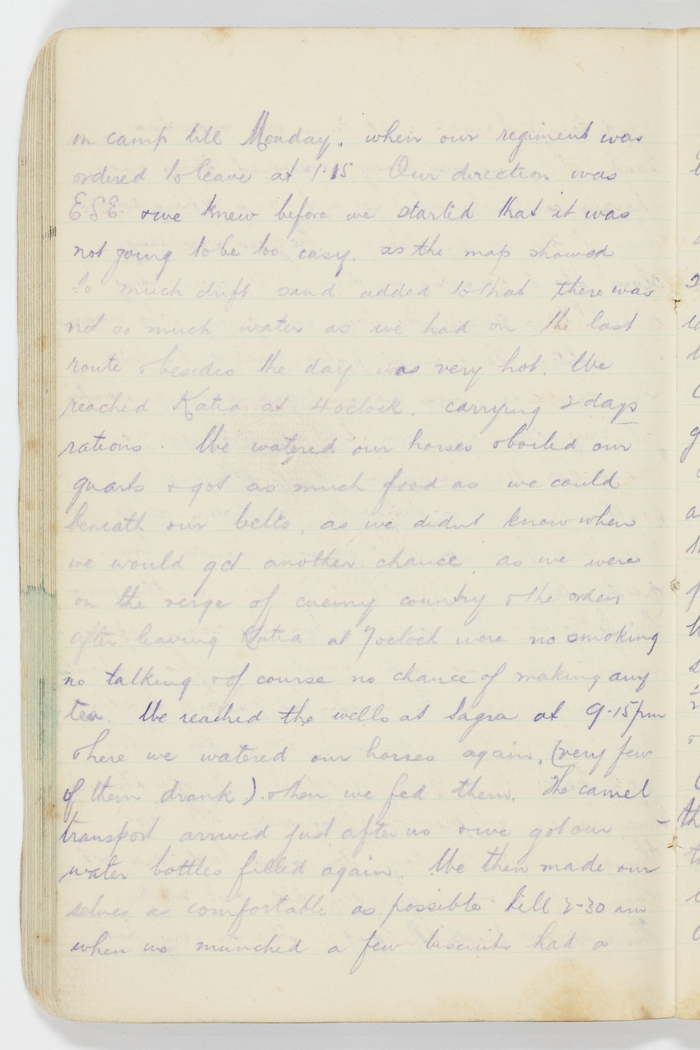 in camp till Monday. when our regiment was
ordered to leave at 1.15 Our direction was
E.S.E. & we knew before we started that it was
not going to be too easy. as the map showed
so much drift sand added to that there was
not so much water as we had on the last
route & besides the day was very hot. We
reached Katia at 4 oclock. carrying 2 days
rations. We watered our horses & boiled our
quarts & got as much food as we could
beneath our belts, as we didnt know when
we would get another chance, as we were
on the verge of enemy country & the orders
after leaving Katia at 7 oclock were no smoking
no talking & of course no chance of making any
tea. We reached the wells at Sagia at 9.15 pm
& here we watered our horses again, (very few
of them drank). & then we fed them. The camel
transport arrived just after us & we got our
water bottles filled again. We then made our
selves as comfortable as possible till 2-30 am
when we munched a few biscuits had a